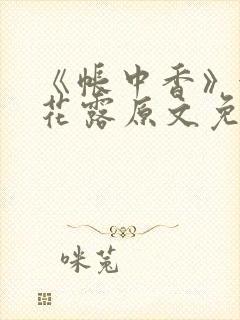 《帐中香》
花露原文免
咪兔